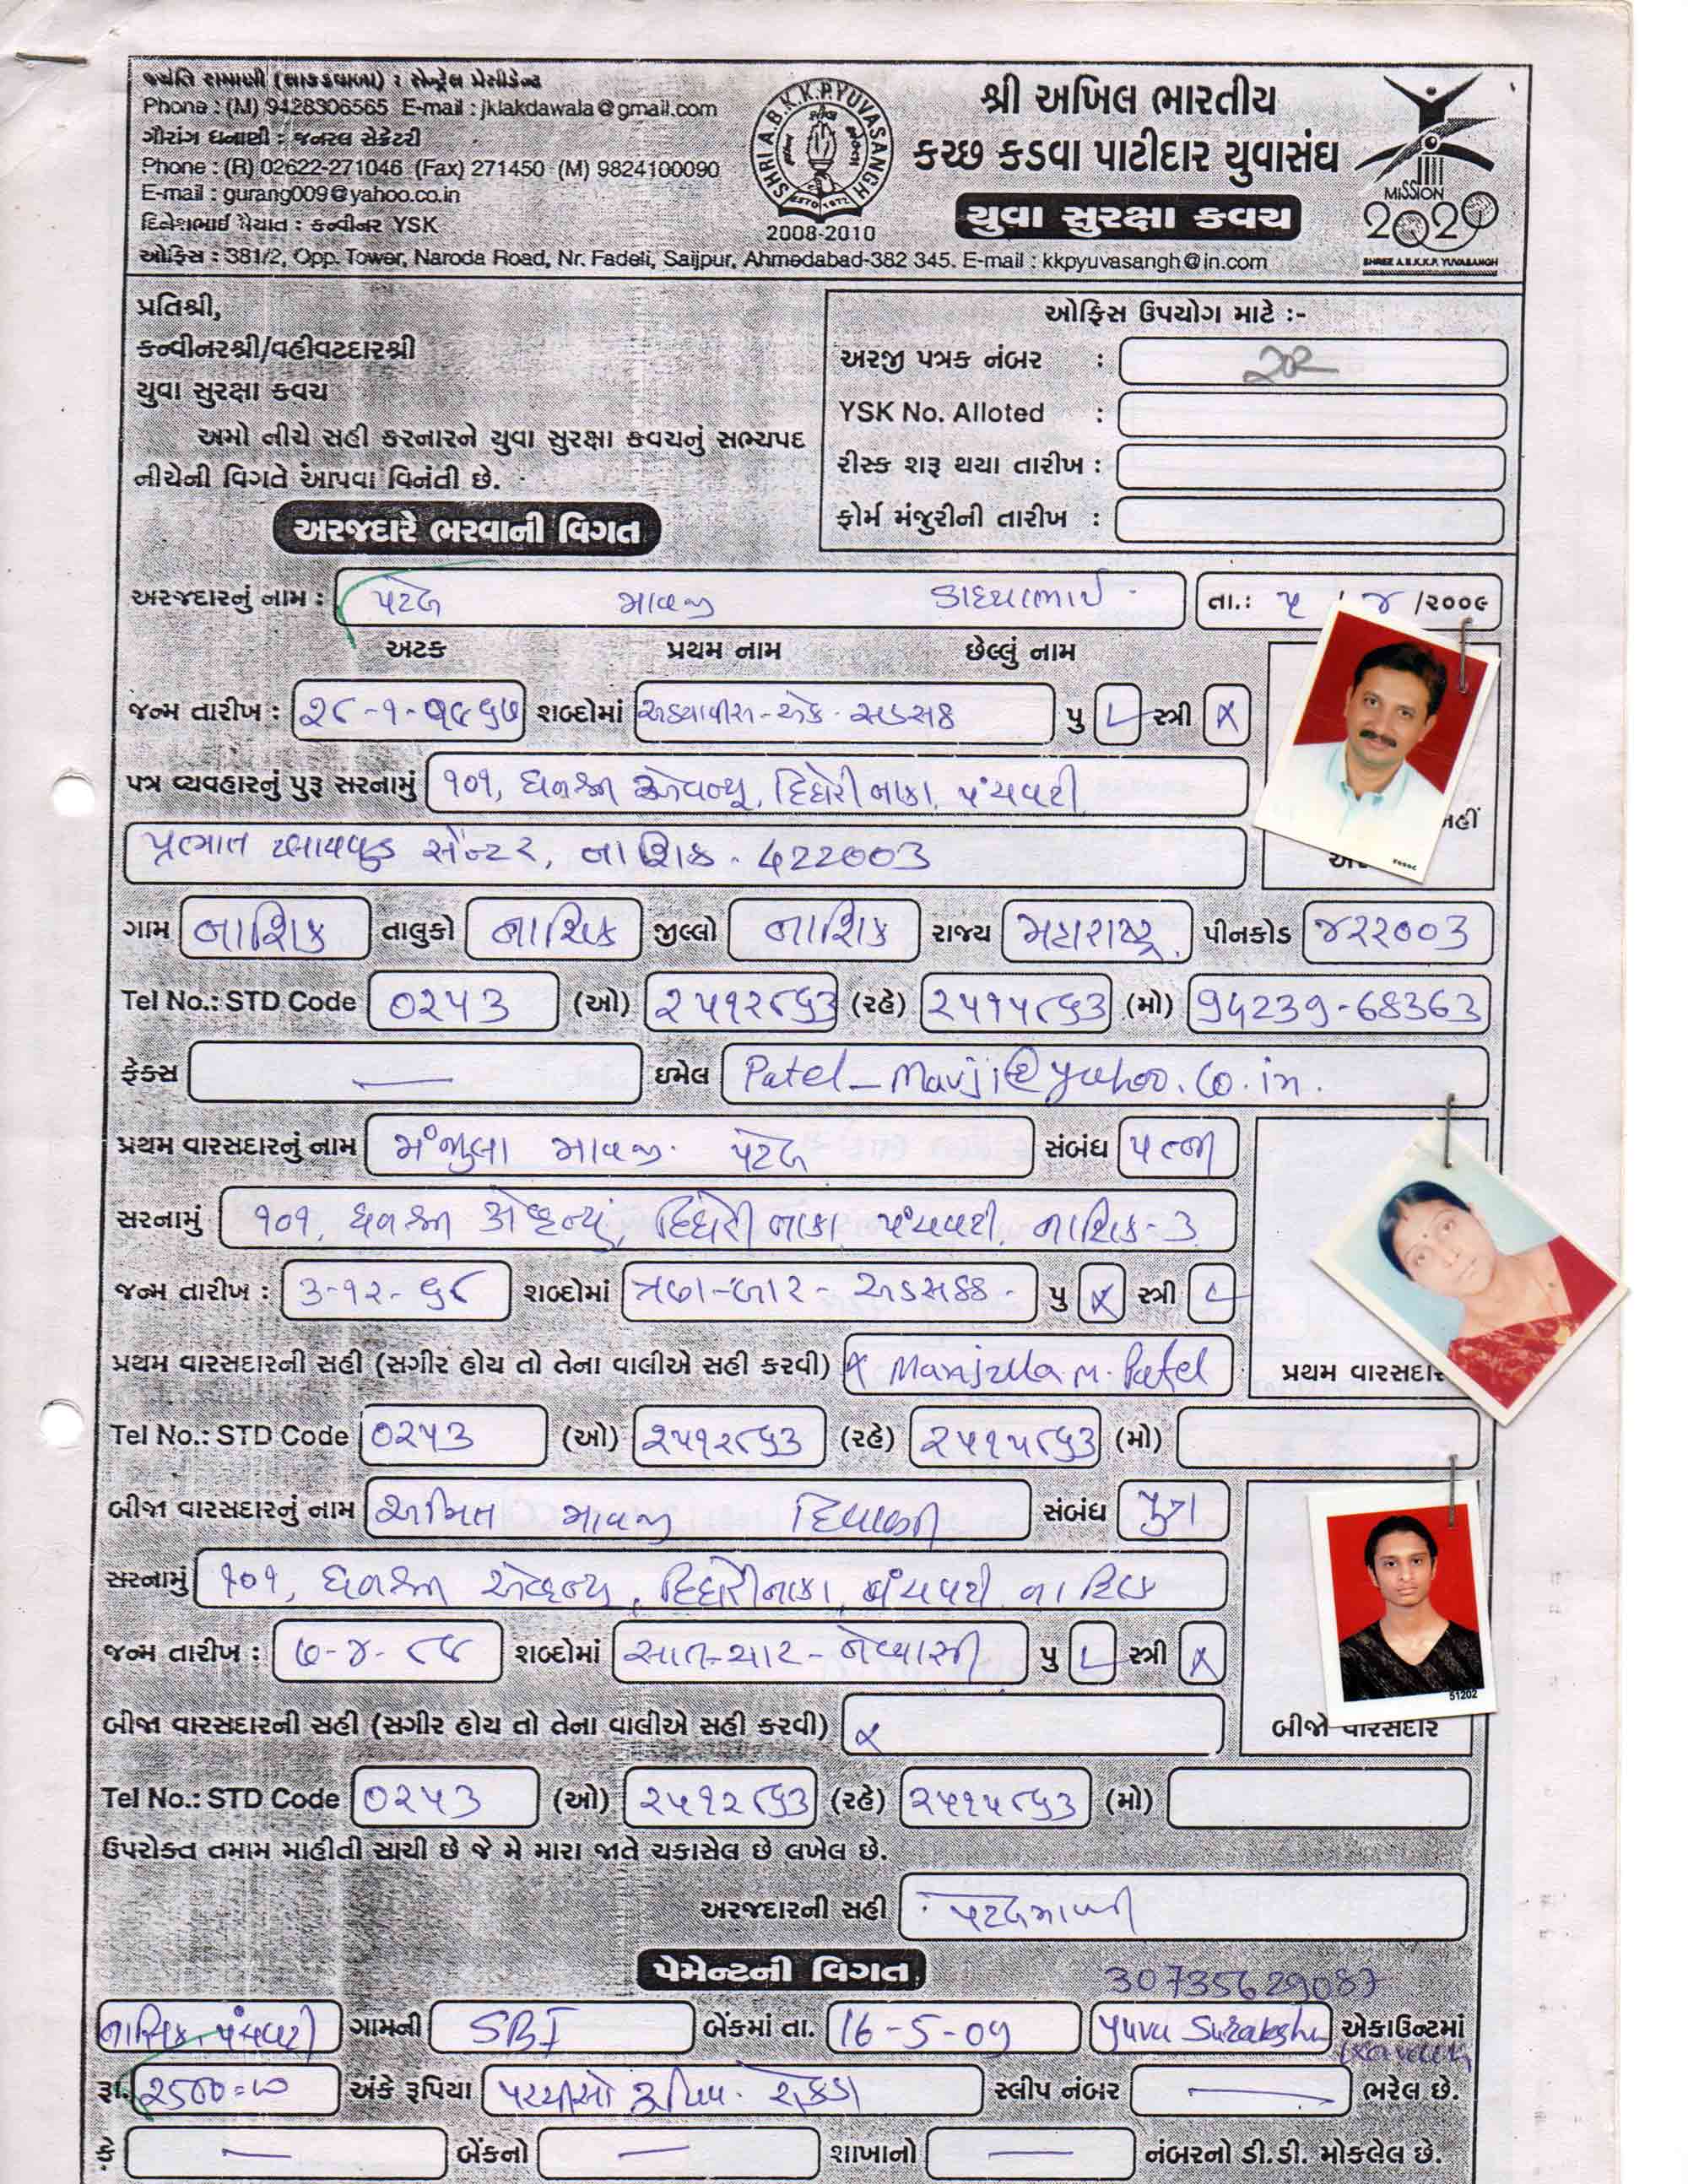 જ્યંતિ રામાણી (લાકડાવાળા) : સેન્ટ્રલ પ્રેસીડેન્ટ
Phone : (M) 9428306565 E-mail : jklakdawala@gmail.com
ગૌરાંગ ધનાણી : જનરલ સેક્રેટરી
Phone : (R) 02622-271046 (Fax) 271450 (M) 9824100090
E-mail : gurang009@yahoo.co.in
દિનેશભાઈ : કન્વીનર YSK
ઓફિસ : 381/2, Opp. Tower, Naroda Road, Nr. Fadeli, Saijpur, Ahmedabad-382 345. E-mail : kkpyuvasangh@in.com
SHRI A.B.K.K.P. YUVASANGH
ESTD 1972
2008-2010
શ્રી અખિલ ભારતીય
કચ્છ કડવા પાટીદાર યુવાસંઘ
યુવા સુરક્ષા કવચ
MISSION
2020
SHREE A.B.K.K.P. YUVASANGH
પ્રતિશ્રી,
કન્વીનરશ્રી/વહીવટદારશ્રી
યુવા સુરક્ષા કવચ
અમો નીચે સહી કરનારને યુવા સુરક્ષા કવચનું સભ્યપદ
નીચેની વિગતે આપવા વિનંતી છે.
ઓફિસ ઉપયોગ માટે :-
અરજી પત્રક નંબર : ૨૦૨
YSK No. Alloted :
રીસ્ક શરૂ થયા તારીખ :
ફોર્મ મંજુરીની તારીખ :
અરજદારે ભરવાની વિગત
અરજદારનું નામ : પટેલ માવજી તા.: ૫ / ૪ /૨૦૦૯
અટક પ્રથમ નામ છેલ્લું નામ
જન્મ તારીખ : ૨૮-૧-૧૯૬૭ શબ્દોમાં અઠયાવીસ-એક-સડસઠ પુ સ્ત્રી X
પત્ર વ્યવહારનું પુરૂ સરનામું ૧૦૧, ધનશ્રી એવન્યુ, દિંઘોરી નાકા, પંચવટી
પ્રભાત પ્લાયવુડ સેંન્ટર, નાશિક - 422003
નહીં
ગામ નાશિક તાલુકો નાશિક જીલ્લો નાશિક રાજ્ય મહારાષ્ટ્ર પીનકોડ ૪૨૨૦૦૩
Tel No.: STD Code ૦૨૫૩ (ઓ) ૨૫૧૨૮૬૩ (રહે) ૨૫૧૫૮૬૩ (મો) 94239-68363
ફેક્સ — ઇમેલ Patel_Mavji@yahoo.co.in.
પ્રથમ વારસદારનું નામ મંજુલા માવજી પટેલ સંબંધ પત્ની
સરનામું ૧૦૧, ધનશ્રી એવ્હન્યું, દિંઘોરી નાકા પંચવટી, નાશિક-૩
જન્મ તારીખ : ૩-૧૨-૬૮ શબ્દોમાં ત્રણ-બાર-અડસઠ પુ X સ્ત્રી
પ્રથમ વારસદારની સહી (સગીર હોય તો તેના વાલીએ સહી કરવી) X Manjulla M. Patel
પ્રથમ વારસદાર
Tel No.: STD Code ૦૨૫૩ (ઓ) ૨૫૧૨૮૬૩ (રહે) ૨૫૧૫૮૬૩ (મો)
બીજા વારસદારનું નામ અમિત માવજી દિવાણી સંબંધ પુત્ર
સરનામું ૧૦૧, ધનશ્રી એવ્હન્યુ, દિંઘોરી નાકા, પંચવટી નાશિક
જન્મ તારીખ : ૭-૪-૮૯ શબ્દોમાં સાત-ચાર-નેવ્યાસી પુ સ્ત્રી X
51202
બીજા વારસદારની સહી (સગીર હોય તો તેના વાલીએ સહી કરવી) X
બીજો વારસદાર
Tel No.: STD Code ૦૨૫૩ (ઓ) ૨૫૧૨૮૬૩ (રહે) ૨૫૧૫૮૬૩ (મો)
ઉપરોક્ત તમામ માહીતી સાચી છે જે મે મારા જાતે ચકાસેલ છે લખેલ છે.
અરજદારની સહી
પેમેન્ટની વિગત
30735629087
નાસિક, પંચવટી ગામની SBI બેંકમાં તા. 16-5-09 Yuva Suraksha એકાઉન્ટમાં
રૂા. ૨૫૦૦=૦૦ અંકે રૂપિયા પચ્ચીસો રૂપિયા રોકડા સ્લીપ નંબર — ભરેલ છે.
કે — બેંકનો — શાખાનો — નંબરનો ડી.ડી. મોકલેલ છે.